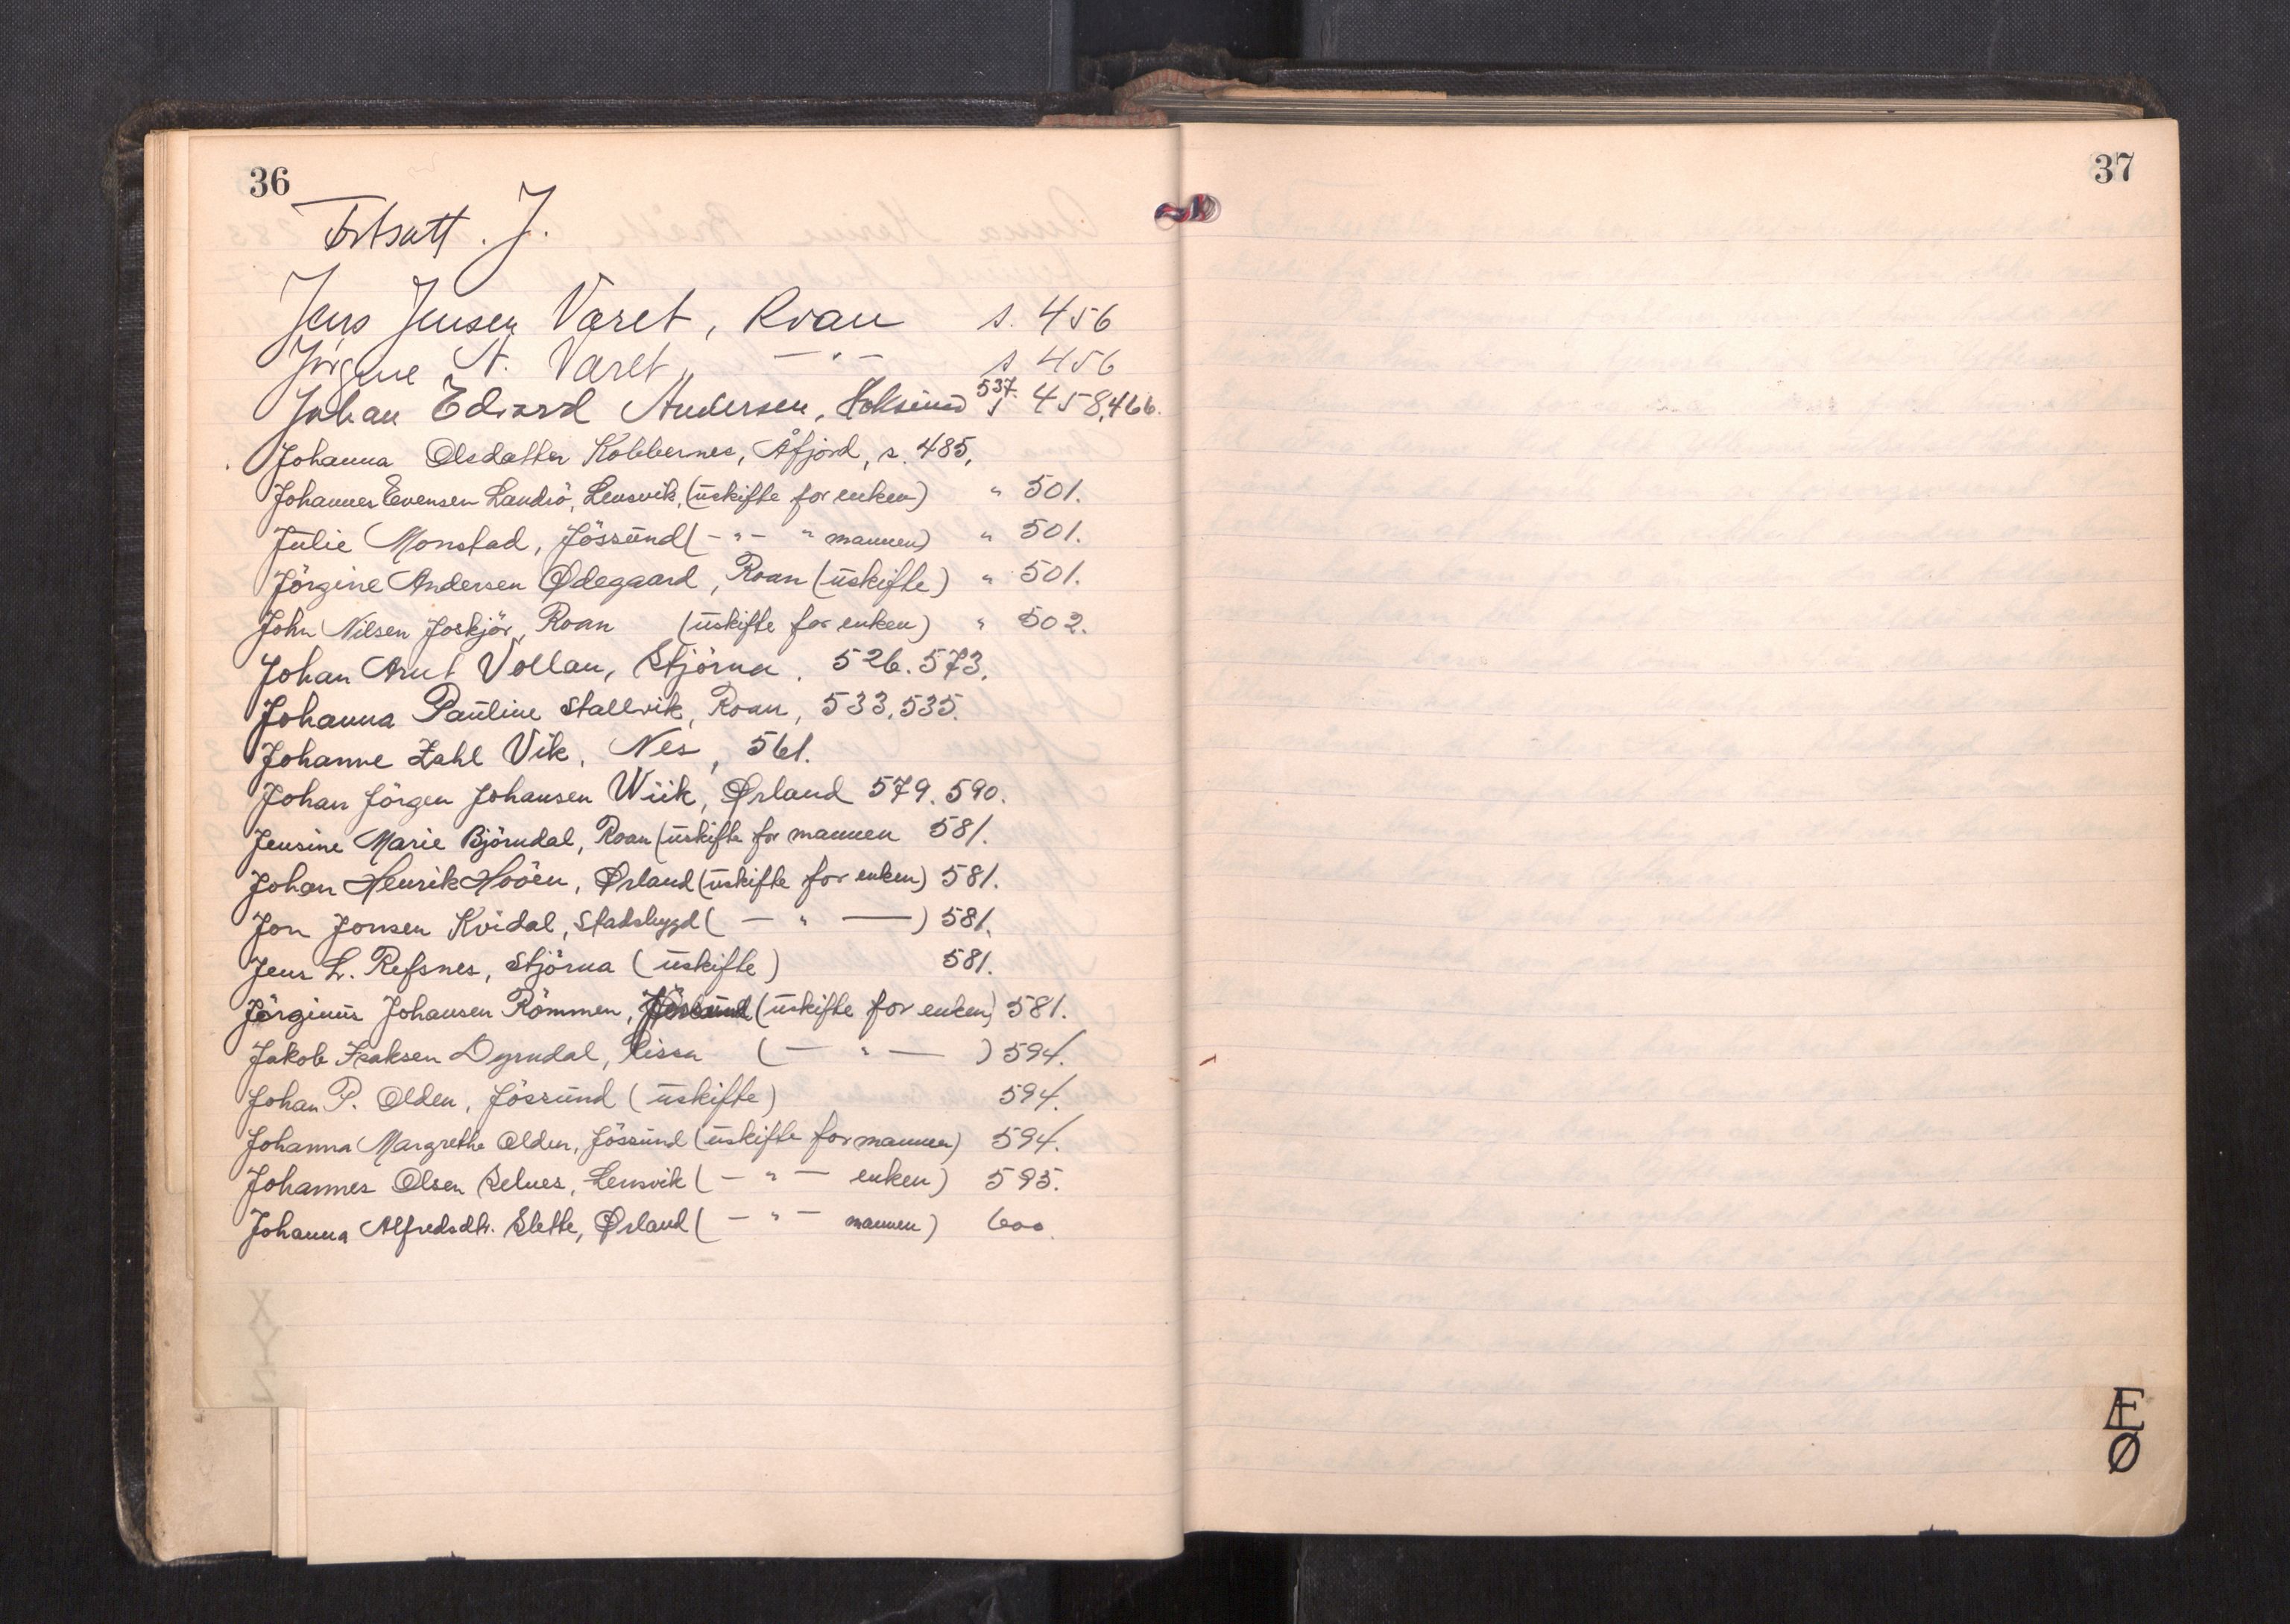 36
Fortsatt. J.
Jens Jensen Været, Roan s. 456
Jörgine N. Været, — " — s 456
Johan Edvard Andersen, Hoksund 537. s 458,466.
Johanna Olsdatter Kobbernes, Åfjord, s. 485,
Johannes Evensen Landrö, Lensvik, (uskifte for enken) " 501.
Julie Monstad, Jössund (- " - " mannen) " 501.
Jörgine Andersen Ødegaard, Roan (uskifte) " 501.
John Nilsen Joskjör, Roan (uskifte for enken) " 502.
Johan Arnt Vollan, Stjörna, 526. 573.
Johanna Pauline Stallvik, Roan, 533, 535.
Johanne Zahl Vik, Nes, 561.
Johan Jörgen Johansen Wiik, Ørland 579. 590.
Jensine Marie Björndal, Roan (uskifte for mannen 581.
Johan Henrik Hoöen, Ørland (uskifte for enken) 581.
Jon Jonsen Kvidal, Stadsbygd ( — " — ) 581.
Jens L. Refsnes, Stjörna (uskifte) 581.
Jörginus Johansen Römmen, Jössund (uskifte for enken) 581.
Jakob Isaksen Dyrndal, Rissa ( — " — ) 594.
Johan P. Olden, Jössund (uskifte) 594.
Johanna Margrethe Olden, Jössund (uskifte for mannen) 594.
Johannes Olsen Selnes, Lensvik ( — " — enken) 595.
Johanna Alfredsdtr. Slette, Ørland ( — " — mannen) 600.
37
Æ
Ø